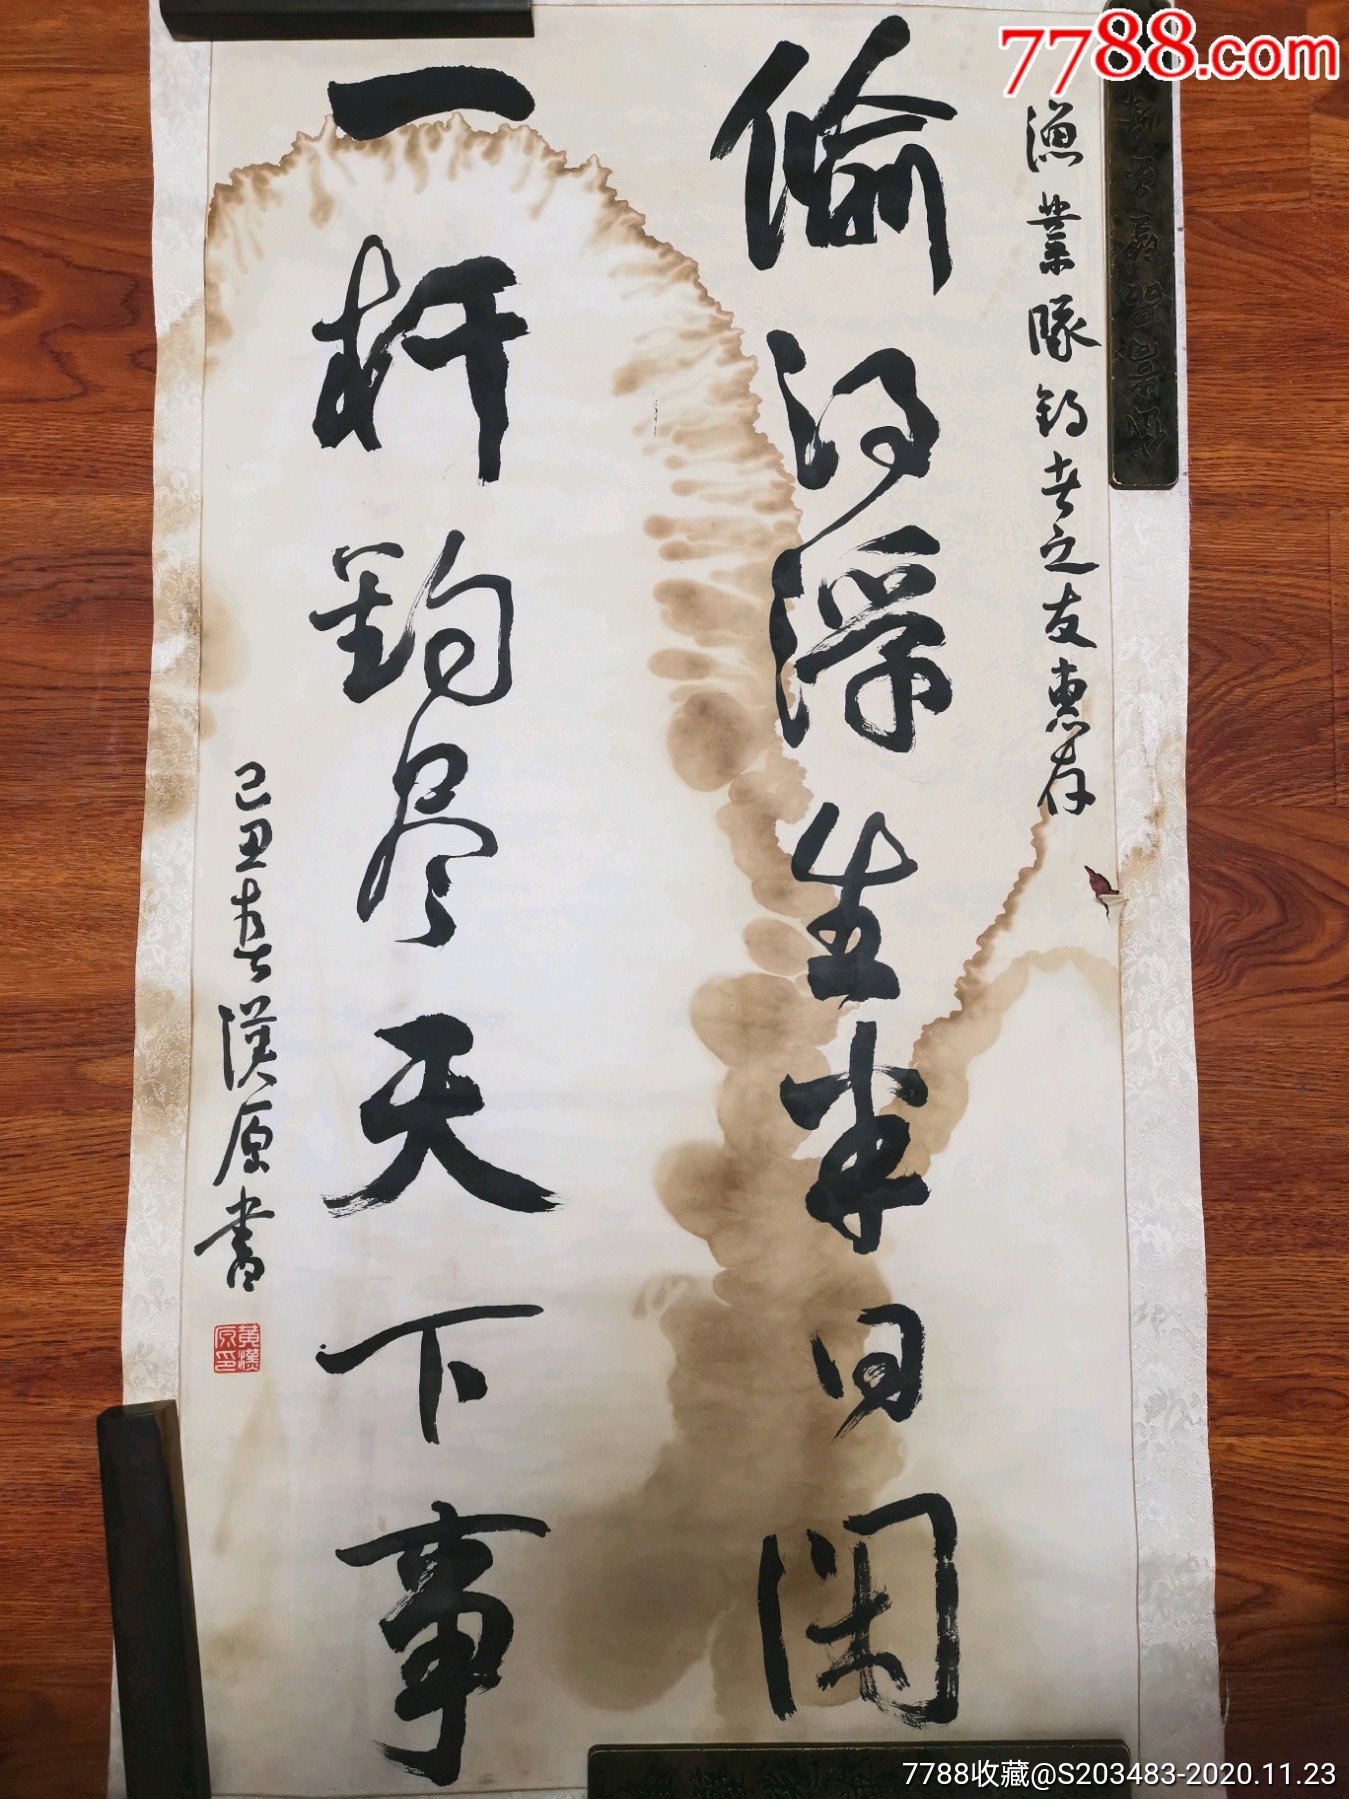 7788.com
渔業隊钓者之友惠存
偷得浮生半日闲
一杆钓尽天下事
己丑
漢原書
黄漢原印
7788收藏@S203483-2020.11.23